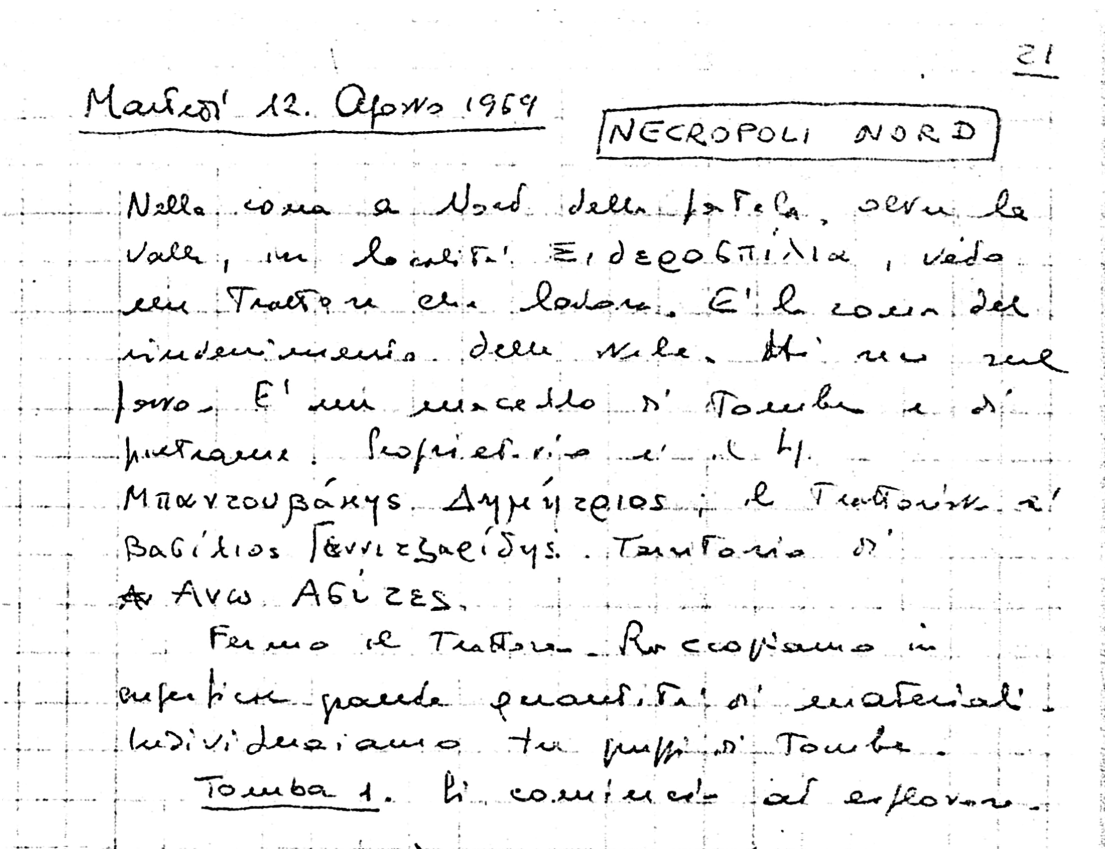 21
Martedì 12. Agosto 1969
NECROPOLI NORD
Nella zona a Nord della patela, oltre la
valle, in località Σιδεροσπίλια, vedo
un Trattore che lavora. E' la zona del
rinvenimento delle stele. Mi reco sul
posto. E' un macello di Tombe e di
pietrame. Proprietario è il
Μπαντουβάκης Δημήτριος; il Trattorista è
Βασίλιος Γεννιτζαρίδης. Territorio di
Ανω Ασίτες.
Fermo il Trattore. Raccogliamo in
superficie grande quantità di materiali.
Individuaiamo tre gruppi di Tombe.
Tomba 1. Si comincia ad esplorare.